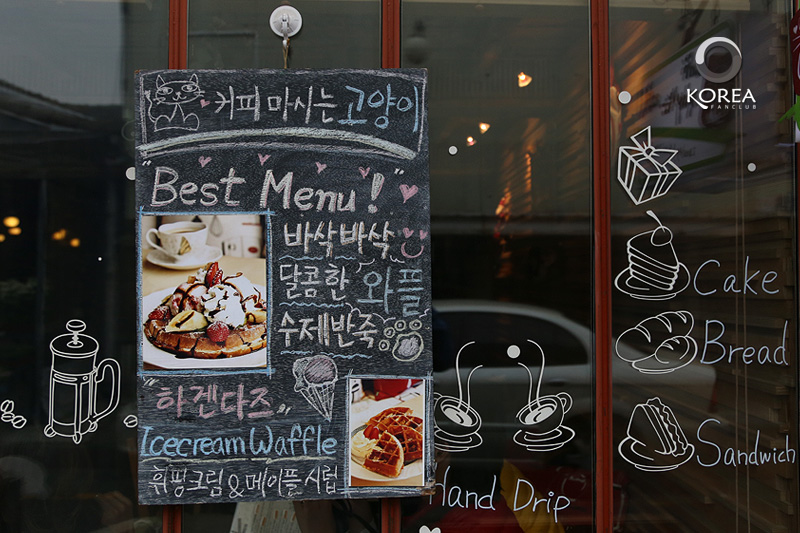 커피 마시는 고양이
"Best Menu!"
바삭바삭
달콤한 와플
수제반죽
"하겐다즈"
Icecream Waffle
휘핑크림 & 메이플 시럽
Hand Drip
Cake
Bread
Sandwich
KOREA
FANCLUB